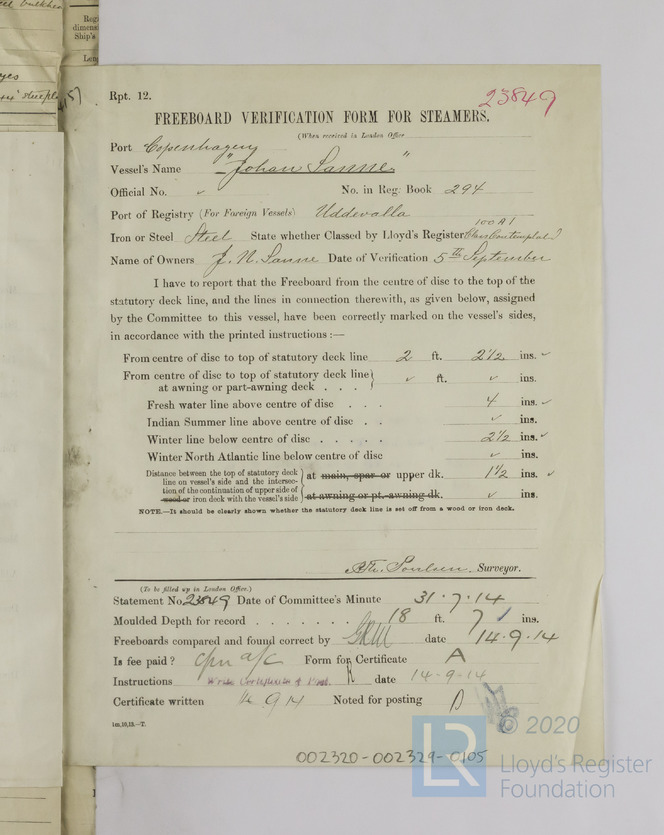 Rpt. 12.
23849
FREEBOARD VERIFICATION FORM FOR STEAMERS.
(When received in London Office
Port Copenhagen
Vessel's Name "Johan Sanne"
Official No. ✓ No. in Reg. Book 294
Port of Registry (For Foreign Vessels) Uddevalla
100 A 1
Iron or Steel Steel State whether Classed by Lloyd's Register Class Contemplated
Name of Owners J. N. Sanne Date of Verification 5th September
I have to report that the Freeboard from the centre of disc to the top of the
statutory deck line, and the lines in connection therewith, as given below, assigned
by the Committee to this vessel, have been correctly marked on the vessel's sides,
in accordance with the printed instructions :—
From centre of disc to top of statutory deck line 2 ft. 2½ ins. ✓
From centre of disc to top of statutory deck line
at awning or part-awning deck . . . ✓ ft. ✓ ins.
Fresh water line above centre of disc . . . 4 ins. ✓
Indian Summer line above centre of disc . . ✓ ins.
Winter line below centre of disc . . . . . 2½ ins. ✓
Winter North Atlantic line below centre of disc ✓ ins.
Distance between the top of statutory deck
line on vessel's side and the intersec-
tion of the continuation of upper side of
wood or iron deck with the vessel's side
at main, spar or upper dk. 1½ ins. ✓
at awning or pt.-awning dk. ✓ ins.
NOTE.—It should be clearly shown whether the statutory deck line is set off from a wood or iron deck.
Surveyor.
(To be filled up in London Office.)
Statement No. 23849 Date of Committee's Minute 31.7.14
Moulded Depth for record . . . . . . . 18 ft. 7 ins.
Freeboards compared and found correct by date 14.9.14
Is fee paid? a/c Form for Certificate A
Instructions date 14-9-14
Certificate written 14.9.14 Noted for posting
1m,10,13.—T.
002320-002329-0105
LR © 2020
Lloyd's Register
Foundation